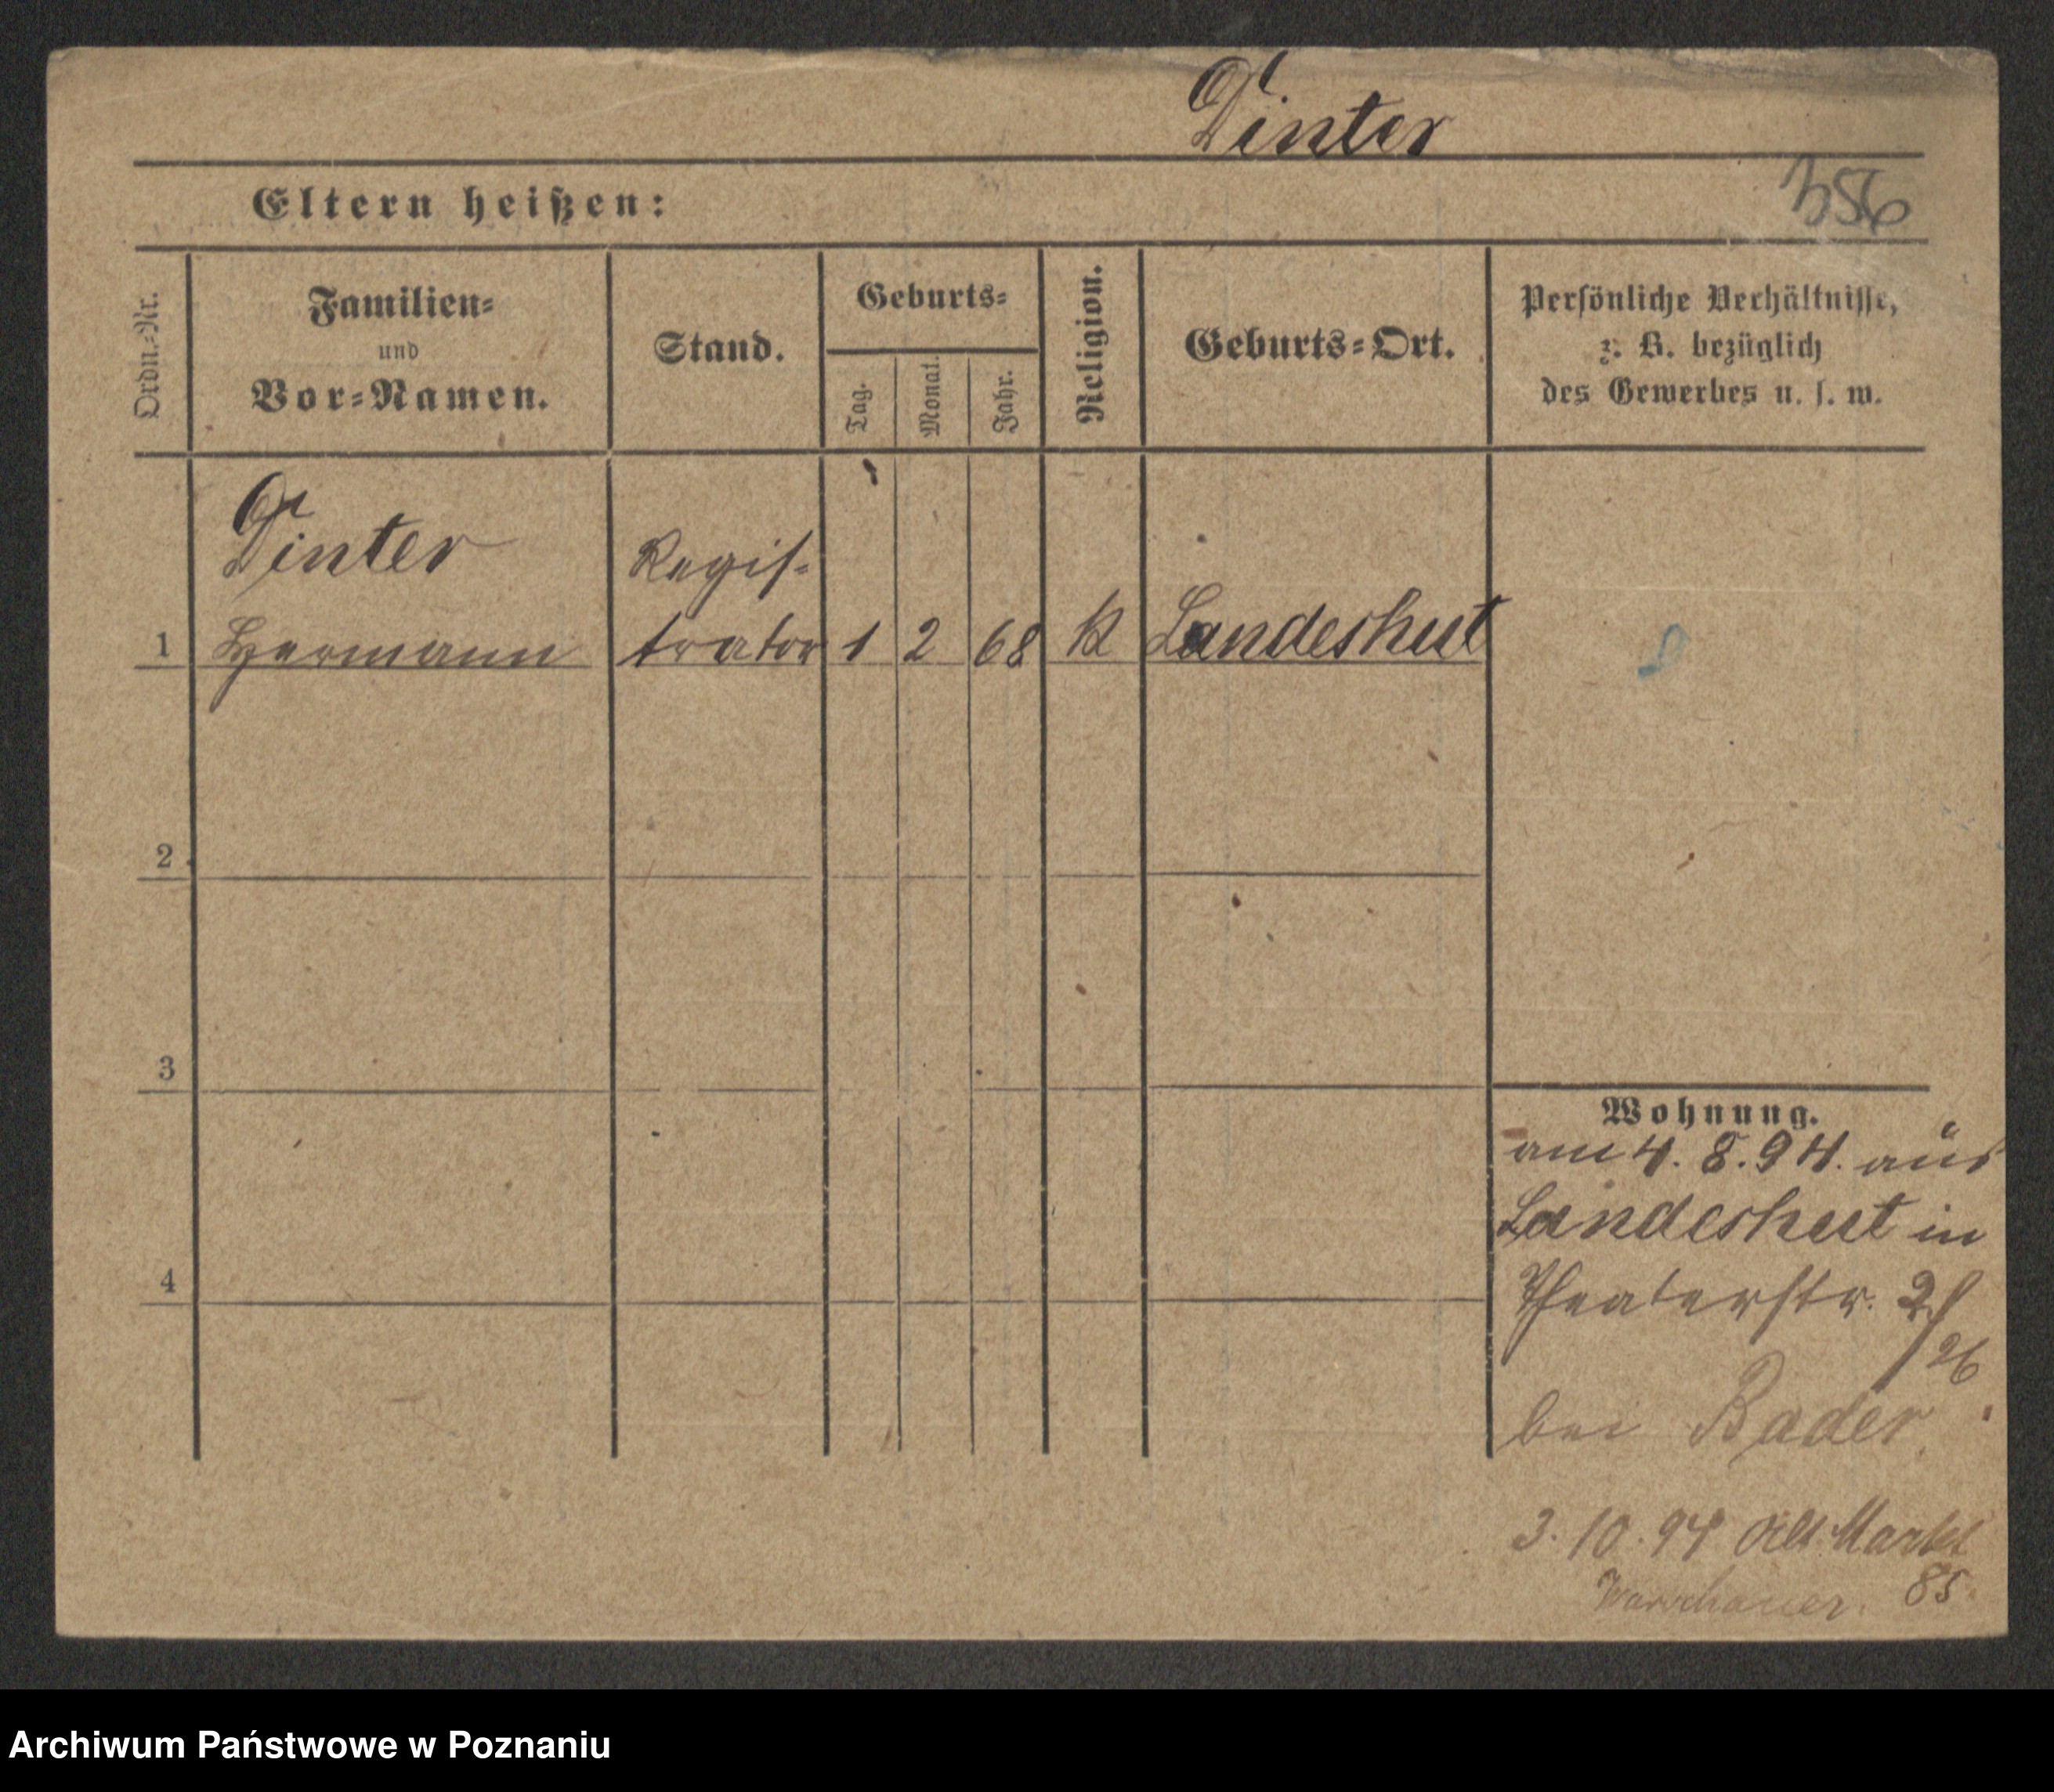 Dinter
356
Eltern heißen:
Ordn.-Nr.
Familien-
und
Vor-Namen.
Stand.
Geburts-
Tag.
Monat.
Jahr.
Religion.
Geburts-Ort.
Persönliche Verhältnisse,
z. B. bezüglich
des Gewerbes u. s. w.
Dinter
Regis-
1 Hermann trator 1 2 68 K Landeshut
2
3
4
Wohnung.
am 4. 8. 94. aus
Landeshut in
Theaterstr. 2/
26
bei Bader
3. 10. 94 Alt. Markt
Warschauer. 85.
Archiwum Państwowe w Poznaniu